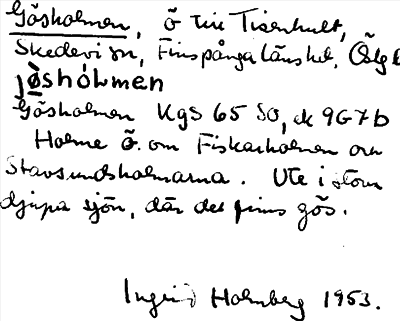 Gösholmen, ö till Tisenhult,
Skedevi sn, Finspånga länshd, Ögl
jø̀shólmen
Gösholmen Kgs 65 SO, ek 9G7b
Holme ö. om Fiskarholmen och
Stavsundsholmarna. Ute i stora
djupa sjön, där det finns gös.
Ingrid Holmberg 1953.